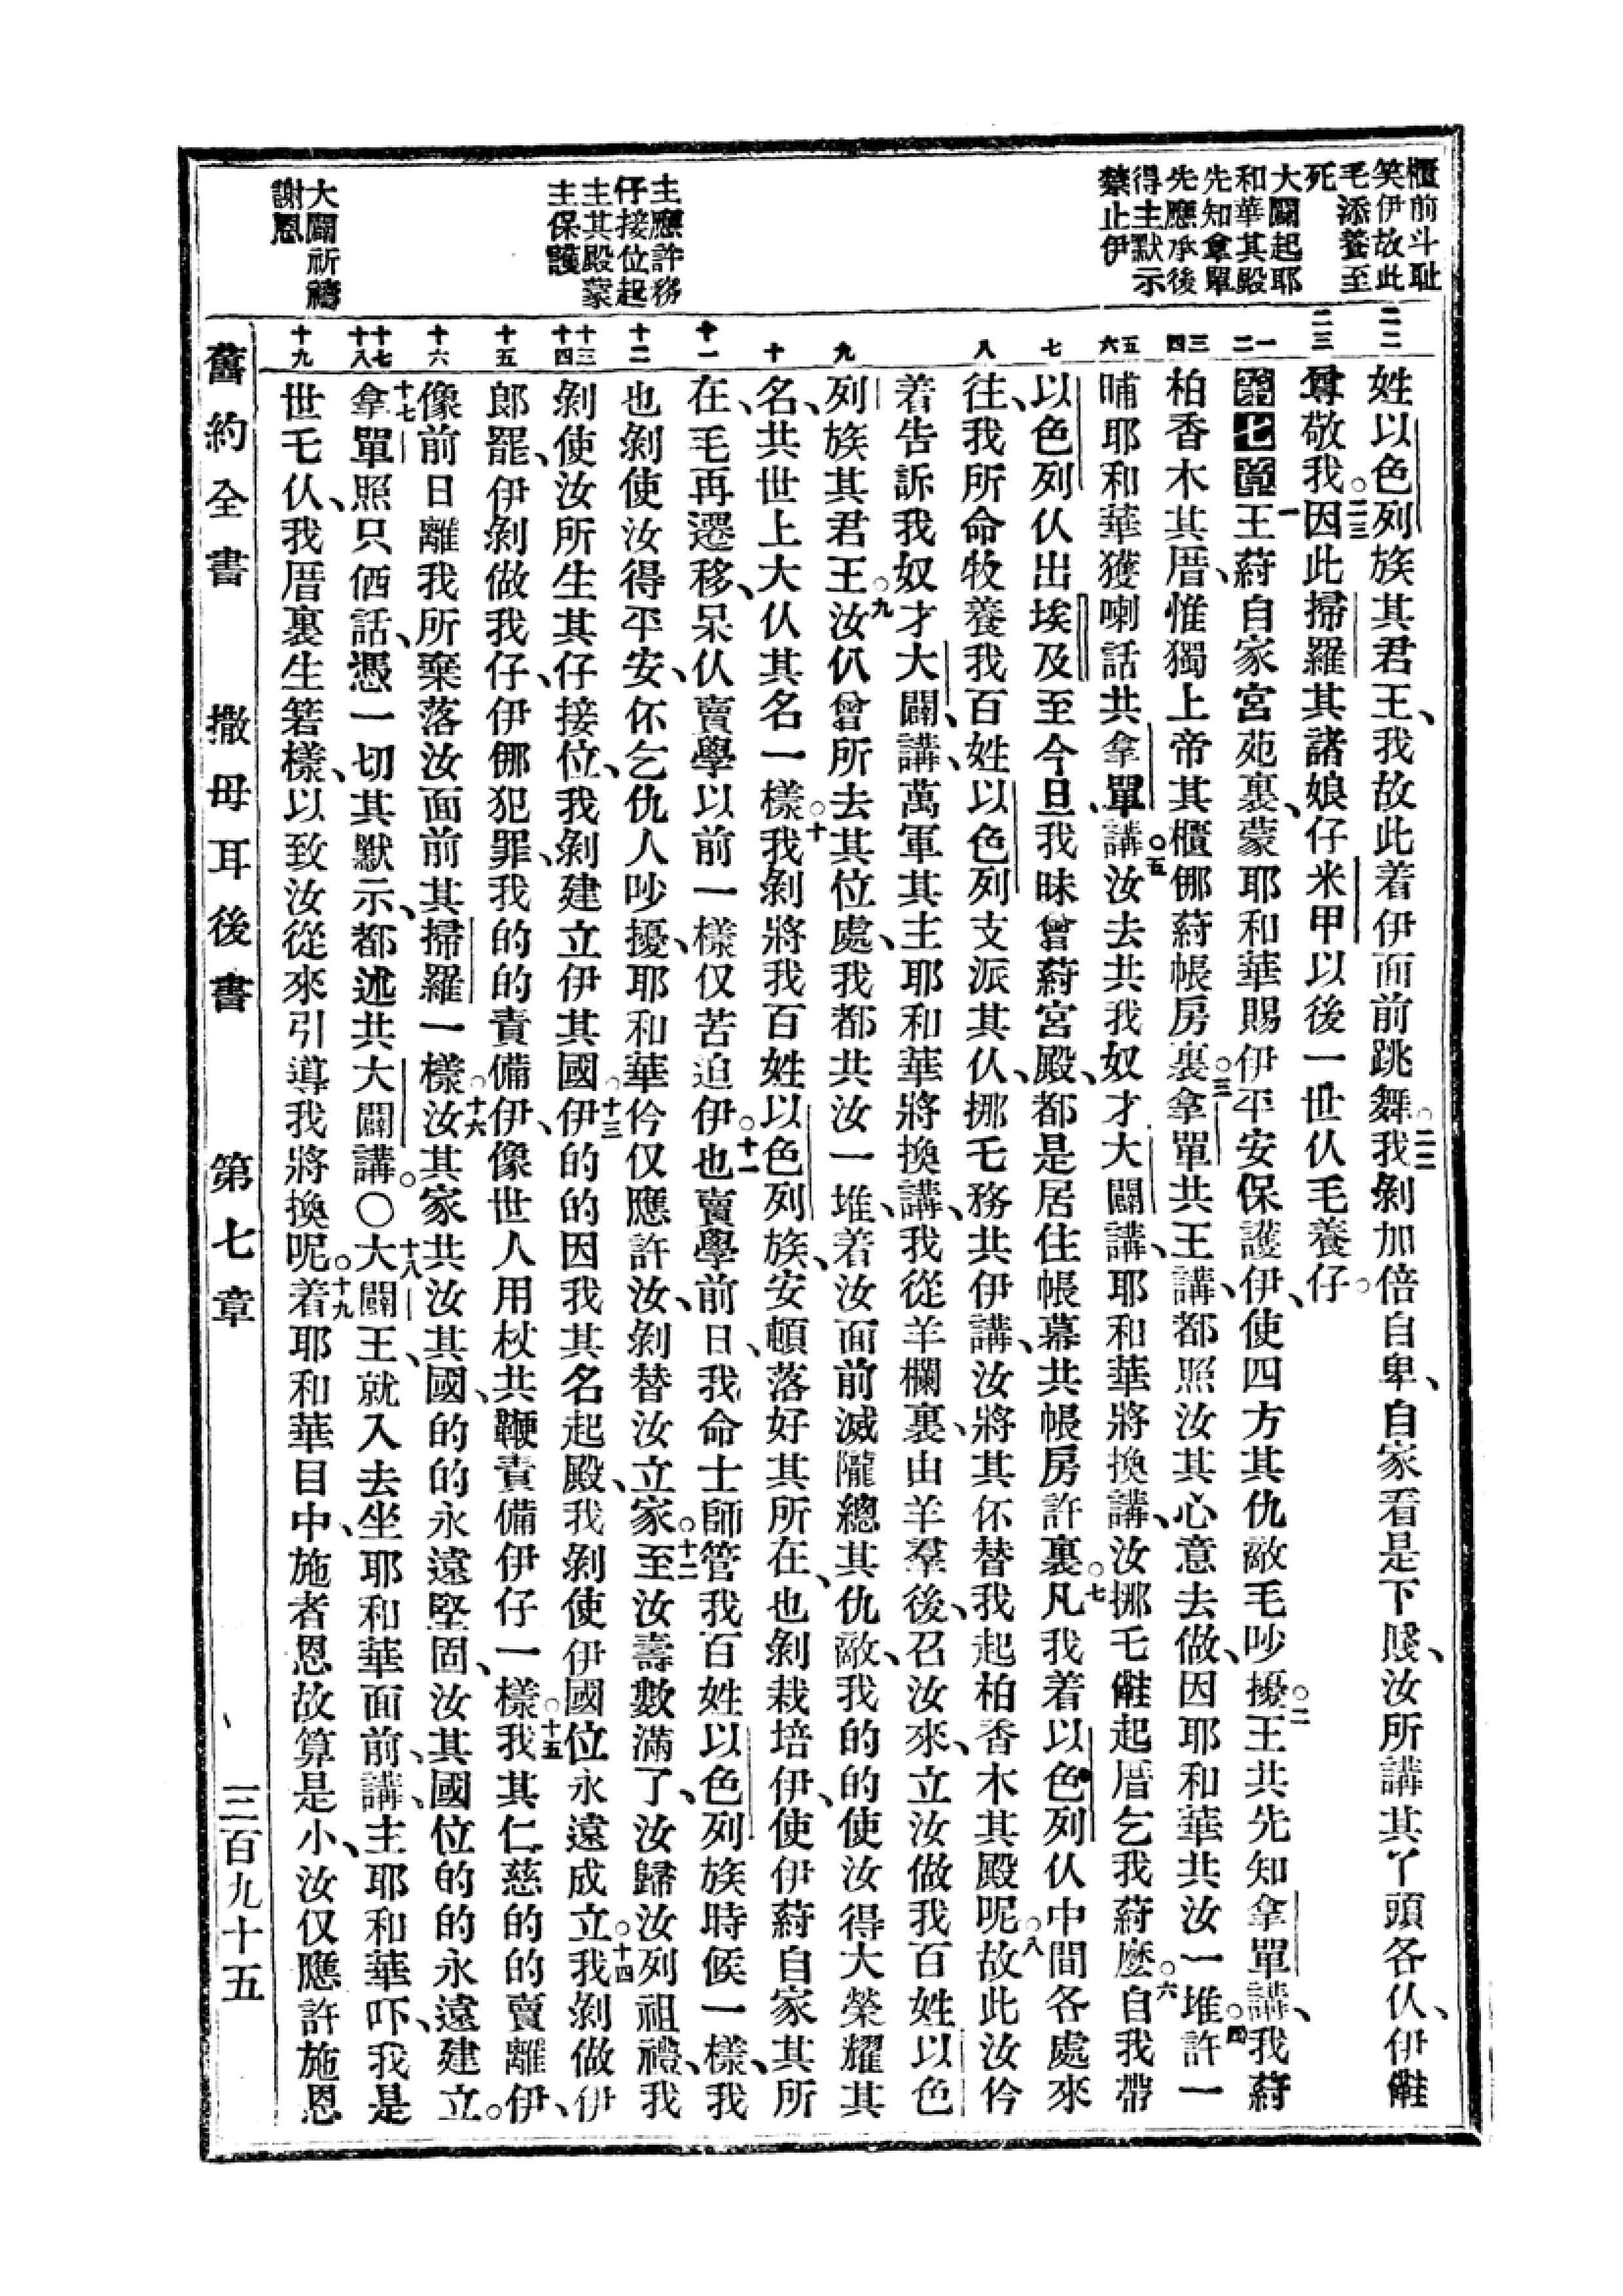 櫃前斗耻
笑伊故此
毛添養至
死
大闢起耶
和華其殿
先知拿單
先應承後
得主默示
禁止伊
主應許務
仔接位起
主其殿蒙
主保護
大闢祈禱
謝恩
二二
二三
一
二
三
四
五
六
七
八
九
十
十一
十二
十三
十四
十五
十六
十七
十八
十九
姓以色列族其君王、我故此着伊面前跳舞。二二我剝加倍自卑、自家看是下賤、汝所講其丫頭各仈、伊
尊敬我。二三因此掃羅其諸娘仔米甲以後一世仈毛養仔。
第七章一王蒔自家宮苑裏、蒙耶和華賜伊平安保護伊、使四方其仇敵毛吵擾。二王共先知拿單講、我蒔
柏香木其厝、惟獨上帝其櫃㑚蒔帳房裏。三拿單共王講、都照汝其心意去做、因耶和華共汝一堆。四許一
晡耶和華獲喇話共拿單講。五汝去共我奴才大闢講、耶和華將換講、汝挪乇起厝乞我蒔麽。六自我帶
以色列仈出埃及至今旦、我昧曾蒔宮殿、都是居住帳幕共帳房許裏。七凡我着以色列仈中間各處來
往、我所命牧養我百姓以色列支派其仈、挪乇務共伊講、汝將其伓替我起柏香木其殿呢。八故此汝仱
着告訴我奴才大闢、講、萬軍其主耶和華將換講、我從羊欄裏、由羊羣後、召汝來、立汝做我百姓以色
列族其君王。九汝仈曾所去其位處、我都共汝一堆、着汝面前滅隴總其仇敵、我的的使汝得大榮耀其
名、共世上大仈其名一樣。十我剝將我百姓以色列族、安頓落好其所在、也剝栽培伊、使伊蒔自家其所
在、毛再遷移、呆仈賣學以前一樣仅苦迫伊。十一也賣學前日、我命士師管我百姓以色列族時候一樣、我
也剝使汝得平安、伓乞仇人吵擾、耶和華仱仅應許汝、剝替汝立家。十二至汝壽數滿了、汝歸汝列祖禮、我
剝使汝所生其仔接位、我剝建立伊其國。十三伊的的因我其名起殿、我剝使伊國位永遠成立。十四我剝做伊
郎罷、伊剝做我仔、伊㑚犯罪、我的的責備伊、像世人用杖共鞭責備伊仔一樣。十五我其仁慈的的賣離伊、
像前日離我所棄落汝面前其掃羅一樣。十六汝其家共汝其國、的的永遠堅固、汝其國位的的永遠建立。
十七拿單照只㑚話、憑一切其默示、都述共大闢講。〇十八大闢王、就入去坐耶和華面前、講、主耶和華吓、我是
世乇仈、我厝裏生箬樣、以致汝從來引導我將換呢。十九着耶和華目中、施者恩故算是小、汝仅應許施恩
舊約全書　撒母耳後書　第七章　三百九十五